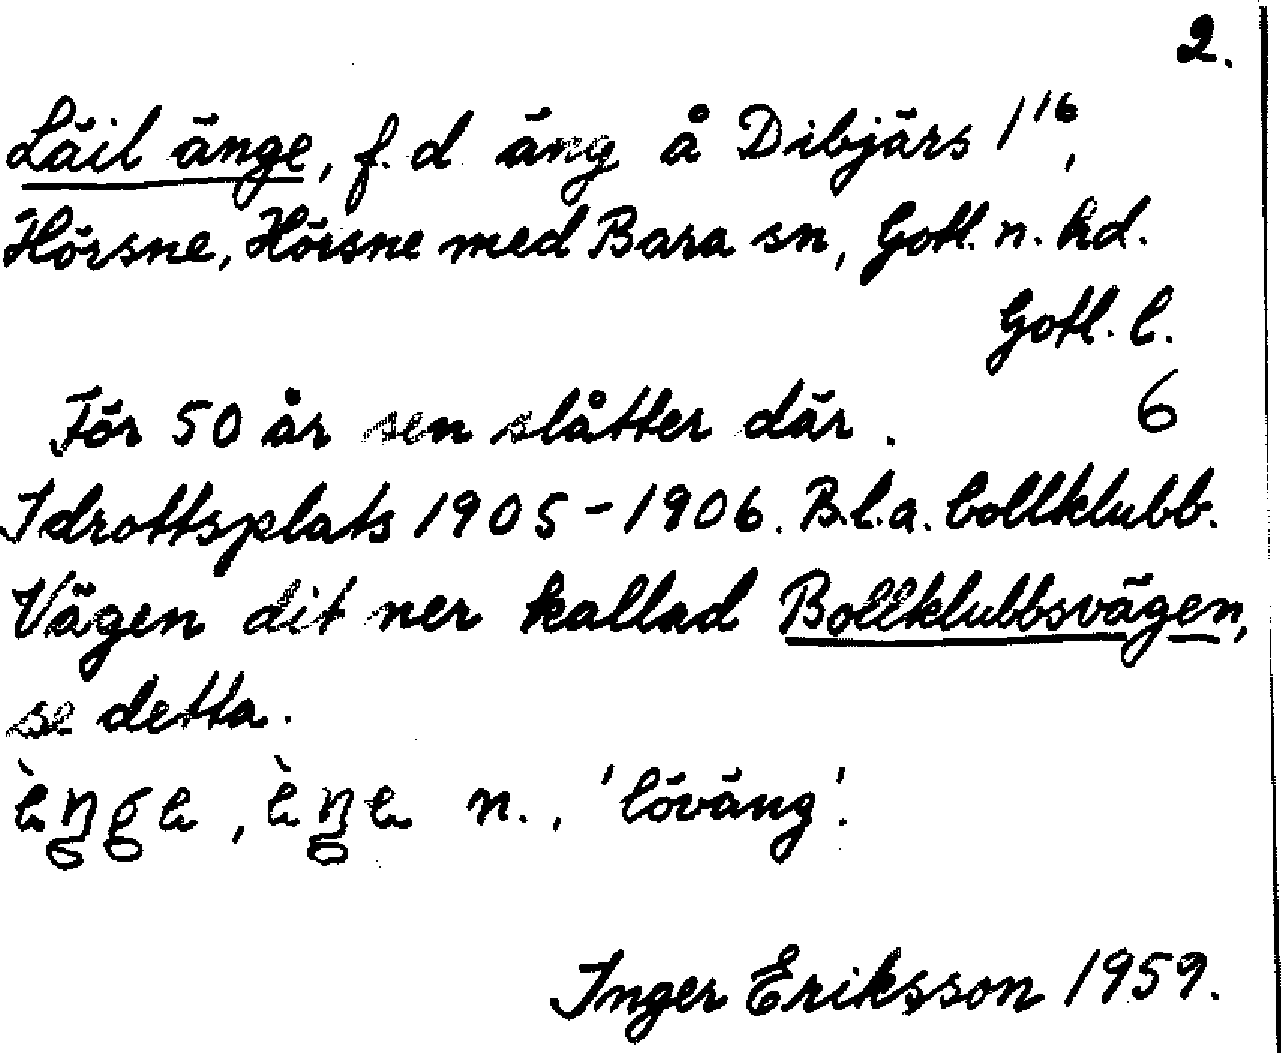 2.
Läil änge, f. d. äng å Dibjärs 1¹⁶,
Hörsne, Hörsne med Bara sn, Gotl. n. hd.
Gotl. l.
6
För 50 år sen slåtter där.
Idrottsplats 1905-1906. Bl.a. bollklubb.
Vägen dit ner kallad Bollklubbsvägen,
se detta.
n., 'löväng'.
Inger Eriksson 1959.